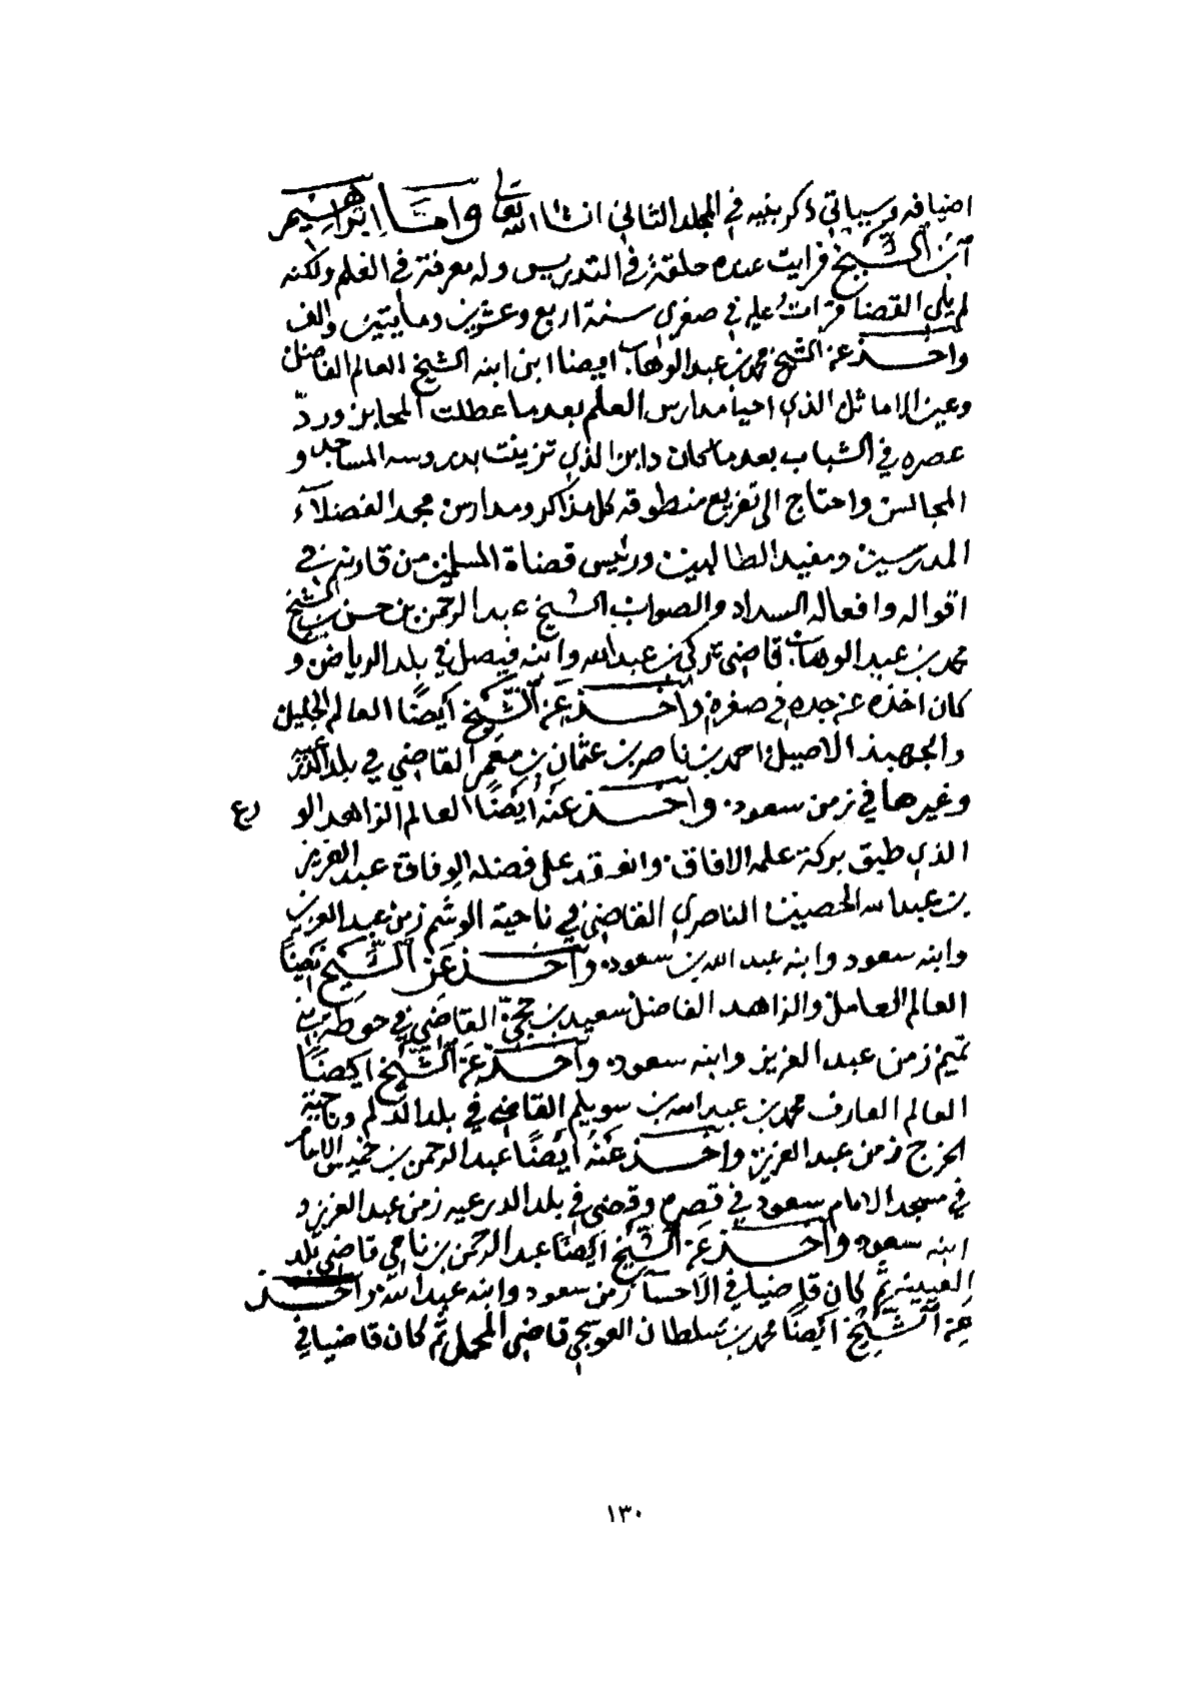 اضيافه وسياتي ذكر بنيه في المجلد الثاني ان شا الله تعالى وامّا ابراهيم
ابن الشيخ فرايت عنده حلقة في التدريس وله معرفة في العلم ولكنه
لم يلي القضا قرات عليه في صغري سنة اربع وعشرين ومايتين والف
واخذ عن الشيخ محمد بن عبد الوهاب ايضا ابن ابنه الشيخ العالم الفاضل
وعين الاماثل الذي احيا مدارس العلم بعد ما عطلت المحابر وردّ
عصره في الشباب بعد ما كان دابرا الذي تزينت بدروسه المساجد و
المجالس واحتاج الى تفريع منطوقه كل مذاكر ومدارس مجد الفضلآء
المدرسين ومفيد الطالبين ورئيس قضاة المسلمين من قارنه في
اقواله وافعاله السداد والصواب الشيخ عبد الرحمن بن حسن بن الشيخ
محمد بن عبد الوهاب قاضي تركي بن عبد الله وابنه فيصل في بلد الرياض و
كان اخذه عن جده في صغره واخذ عن الشيخ أيضًا العالم الجليل
والجهبذ الاصيل احمد بن ناصر بن عثمان بن معمر القاضي في بلد الدرعية
وغيرها في زمن سعود. واخذ عنه أيضًا العالم الزاهد الو رع
الذي طبق بركة علمه الافاق. وانعقد على فضله الوفاق عبد العزيز
بن عبد الله الحصين الناصري القاضي في ناحية الوشم زمن عبد العزيز
وابنه سعود وابنه عبد الله بن سعود. واخذ عن الشيخ ايضًا
العالم العامل والزاهد الفاضل سعيد بن حجيّ القاضي في حوطة بني
تميم زمن عبد العزيز وابنه سعود. واخذ عن الشيخ ايضًا
العالم العارف محمد بن عبد الله بن سويلم القاضي في بلد الدلم وناحية
الخرج زمن عبد العزيز. واخذ عنه أيضًا عبد الرحمن بن خميس الامام
في مسجد الامام سعود في قصره وقضى في بلد الدرعيه زمن عبد العزيز و
ابنه سعود واخذ عن الشيخ ايضًا عبد الرحمن بن نامي قاضي بلد
العيينه ثم كان قاضيا في الاحسا زمن سعود وابنه عبد الله. واخذ
عن الشيخ ايضًا محمد بن سلطان العوسجي قاضي المحمل ثم كان قاضيا في
١٣٠